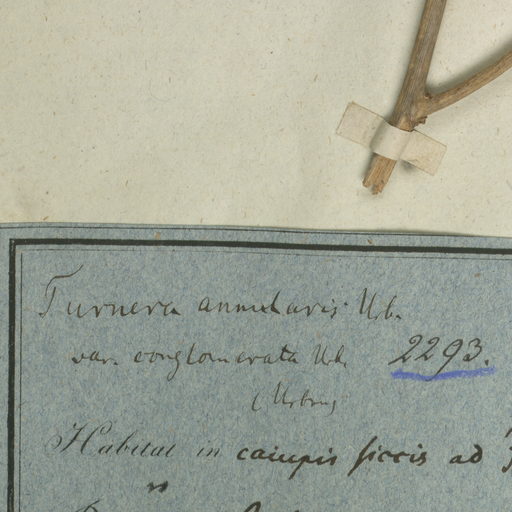 Turnera annularis Urb.
var. conglomerata Urb. 2293.
(Urban)
Habitat in campis siccis ad